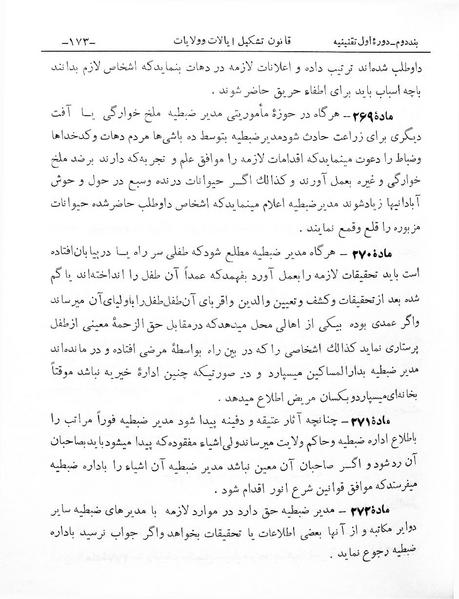 بند دوم ـ دورهٔ اول تقنینیه    قانون تشکیل ایالات وولایات    -۱۷۳-
داوطلب شده‌اند ترتیب داده و اعلانات لازمه در دهات بنمایدکه اشخاص لازم بدانند
باچه اسباب باید برای اطفاء حریق حاضر شوند .
مادهٔ ۲۶۹ ـ هرگاه در حوزهٔ مأموریتی مدیر ضبطیه ملخ خوارگی یا آفت
دیگری برای زراعت حادث شودمدیرضبطیه بتوسط ده باشی‌ها مردم دهات وکدخداها
وضباط را دعوت مینمایدکه اقدامات لازمه را موافق علم و تجربه‌که دارند برضد ملخ
خوارگی و غیره بعمل آورند و کذالك اگر حیوانات درنده وسبع در حول و حوش
آبادانیها زیادشوند مدیرضبطیه اعلام مینمایدکه اشخاص داوطلب حاضرشده حیوانات
مزبوره را قلع وقمع نمایند .
مادهٔ ۲۷۰ ـ هرگاه مدیر ضبطیه مطلع شودکه طفلی سر راه یا دربیابان‌افتاده
است باید تحقیقات لازمه رابعمل آورد بفهمدکه عمداً آن طفل را انداخته‌اند یاگم
شده بعد ازتحقیقات وکشف وتعیین والدین واقربای آن‌طفل‌طفل‌راباولیای‌آن میرساند
واگر عمدی بوده بیکی از اهالی محل میدهدکه درمقابل حق الزحمهٔ معینی ازطفل
پرستاری نماید کذالك اشخاصی را که در بین راه بواسطهٔ مرضی افتاده و در مانده‌اند
مدیر ضبطیه بدارالمساکین میسپارد و در صورتیکه چنین ادارهٔ خیریه نباشد موقتاً
بخانه‌ای‌میسپاردوبکسان مریض اطلاع میدهد .
مادهٔ ۲۷۱ ـ چنانچه آثار عتیقه و دفینه پیدا شود مدیر ضبطیه فوراً مراتب را
باطلاع اداره ضبطیه وحاکم ولایت میرساندولی‌اشیاء مفقوده‌که پیدا میشودبایدبصاحبان
آن ردشود و اگر صاحبان آن معین نباشد مدیر ضبطیه آن اشیاء را باداره ضبطیه
میفرستدکه موافق قوانین شرع انور اقدام شود .
مادهٔ ۲۷۲ ـ مدیر ضبطیه حق دارد در موارد لازمه با مدیرهای ضبطیه سایر
دوایر مکاتبه و از آنها بعضی اطلاعات یا تحقیقات بخواهد واگر جواب نرسید باداره
ضبطیه رجوع نماید .